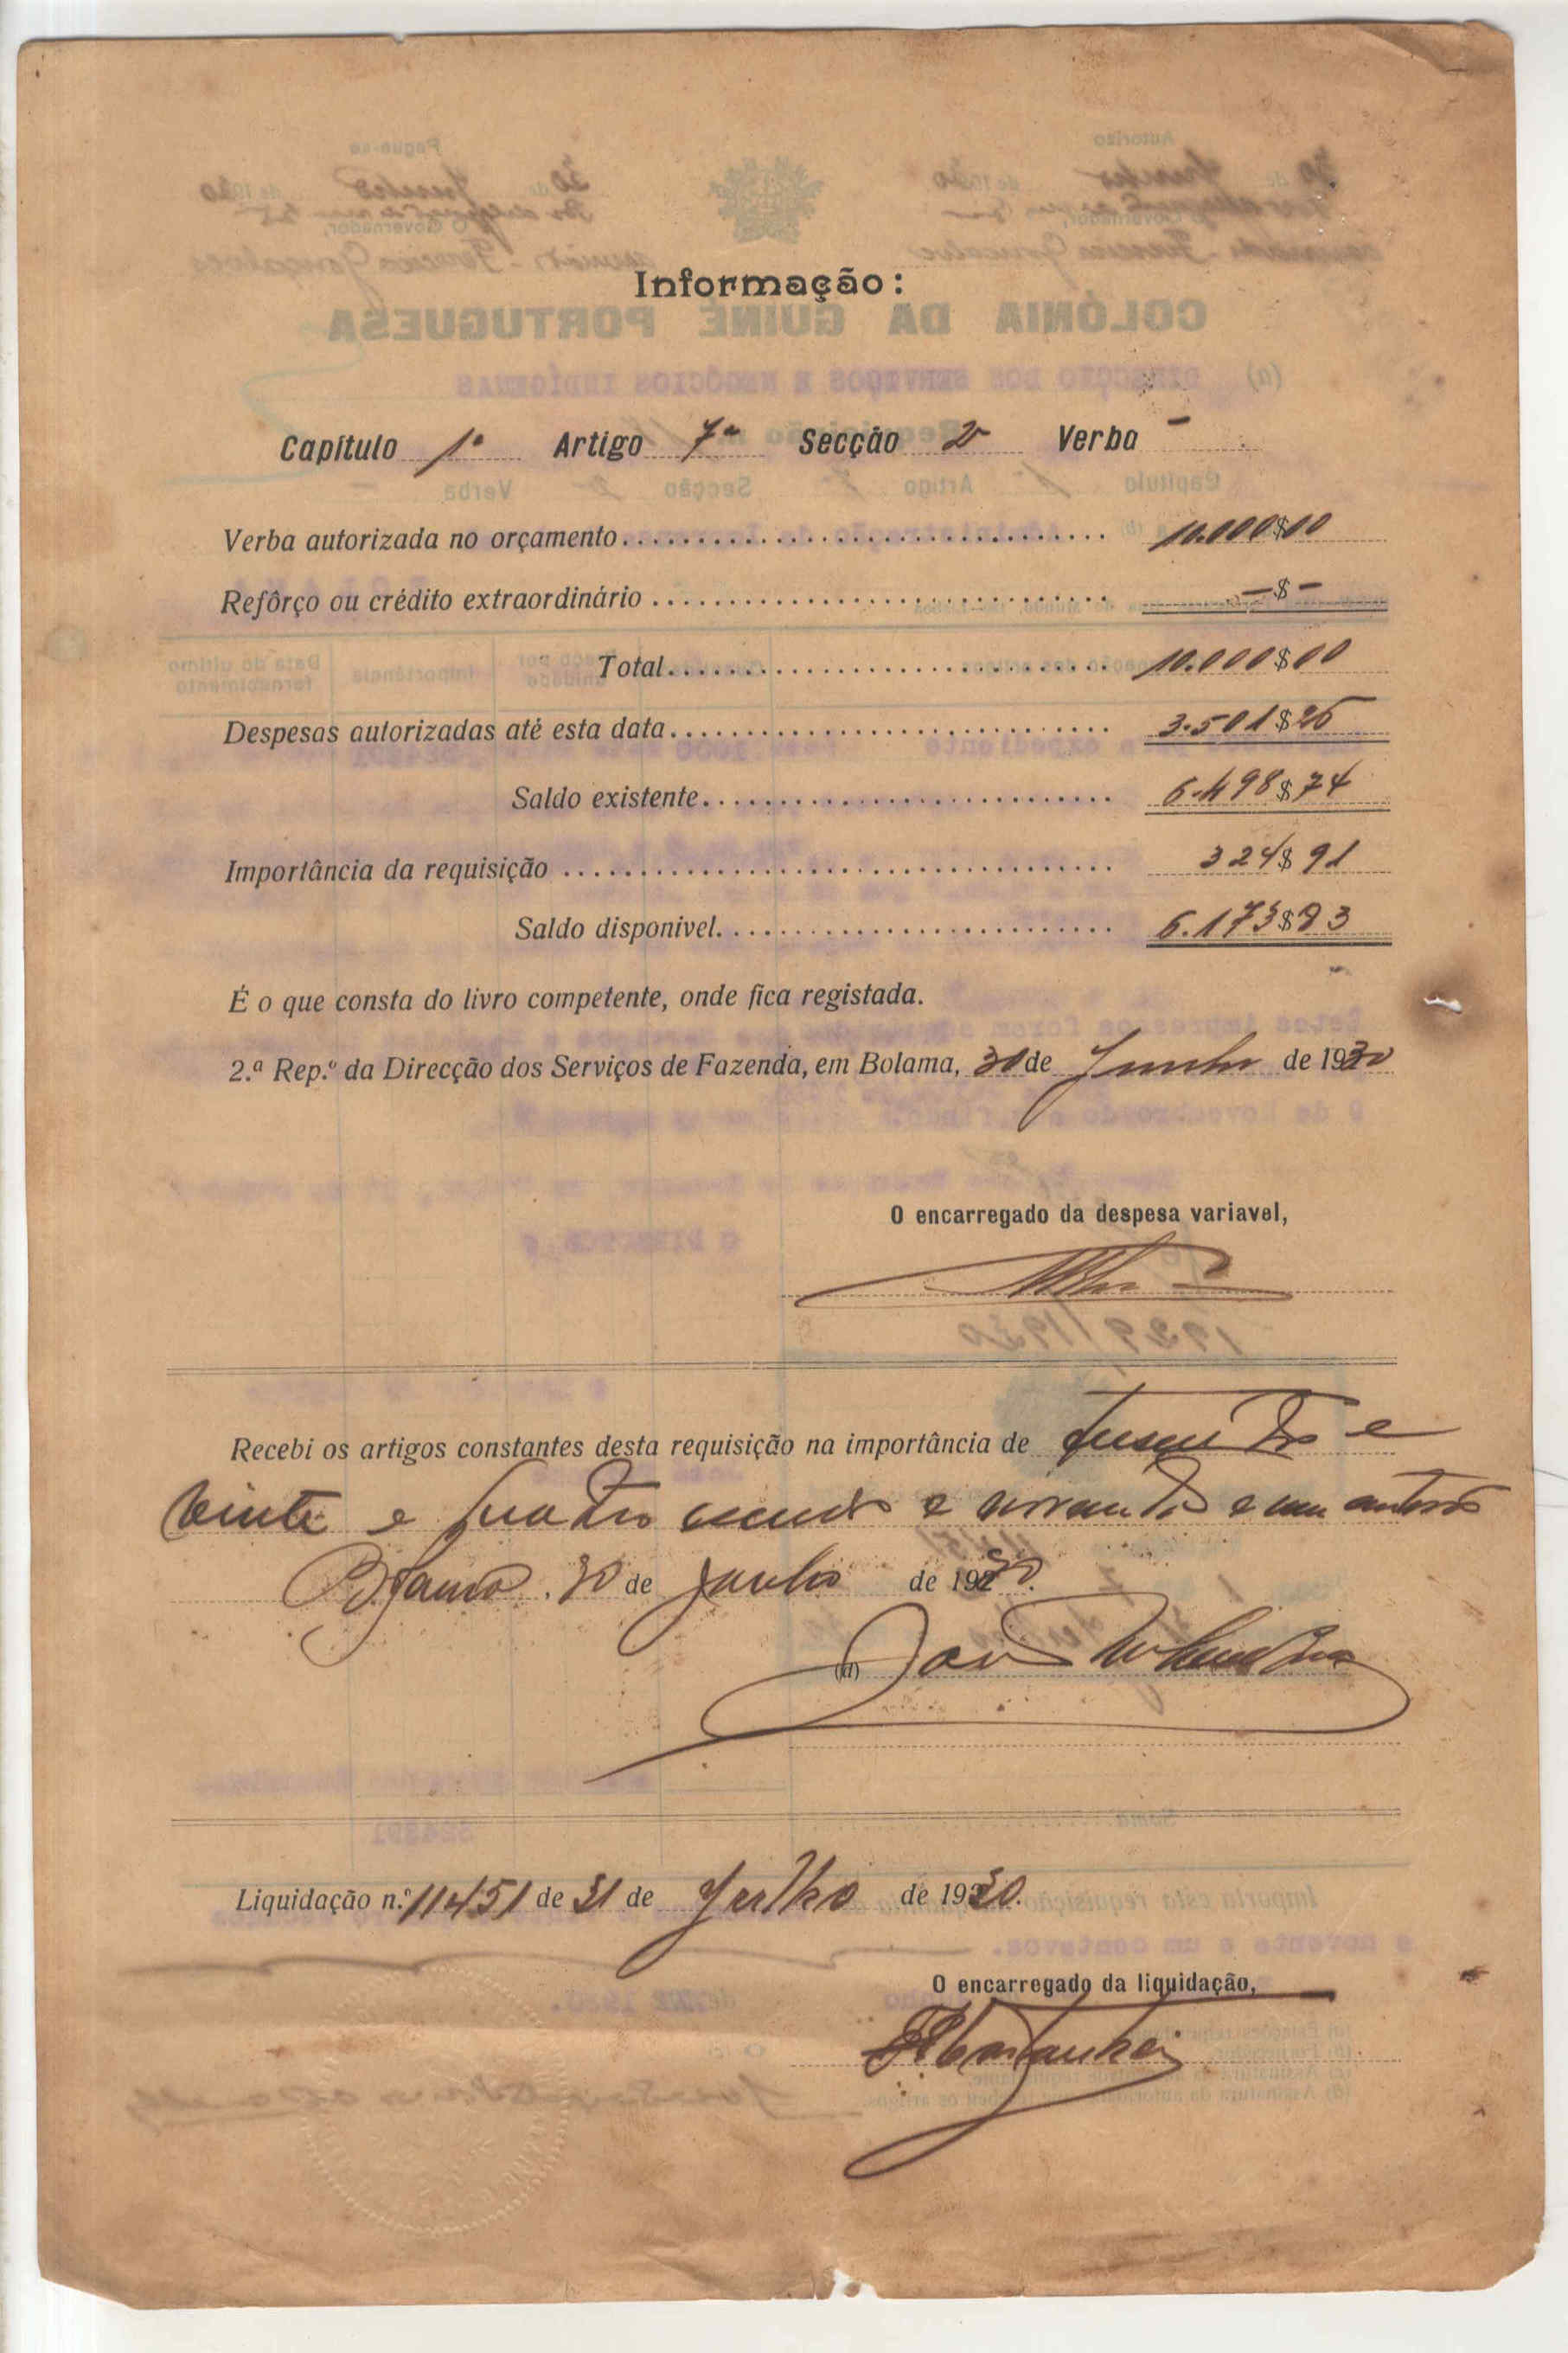 Informação:
Capítulo 1º Artigo 7º Secção 2ª Verba -
Verba autorizada no orçamento 10.000$00
Refôrço ou crédito extraordinário -$-
Total 10.000$00
Despesas autorizadas até esta data 3.501$26
Saldo existente 6.498$74
Importância da requisição 324$91
Saldo disponivel 6.173$83
É o que consta do livro competente, onde fica registada.
2.ª Rep.º da Direcção dos Serviços de Fazenda, em Bolama, 30 de Junho de 1930
O encarregado da despesa variavel,
Recebi os artigos constantes desta requisição na importância de trezentos e
vinte e quatro escudos e noventa e um centavos
Bolama, 30 de Junho de 1930.
(d)
Liquidação n.º 11451 de 31 de Julho de 1930.
O encarregado da liquidação,